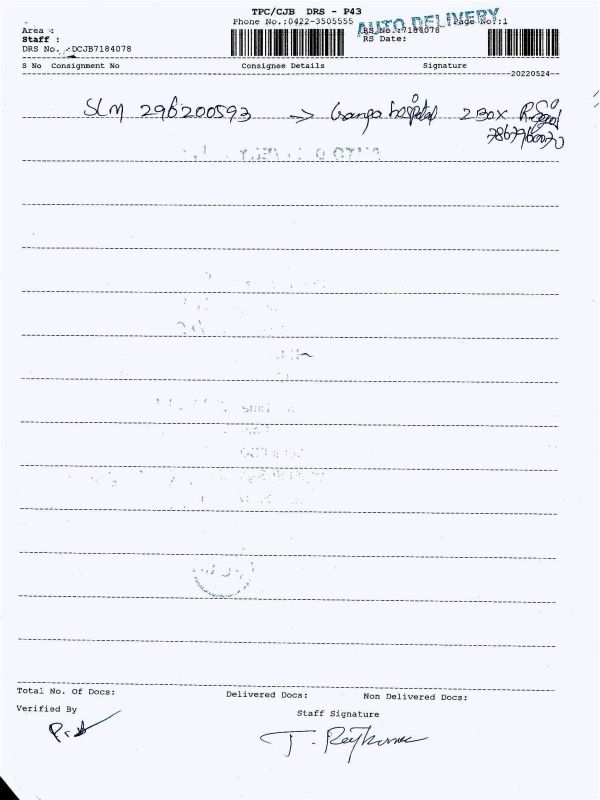 TPC/CJB DRS - P43
Phone No.:0422-3505555 AUTO DELIVERY Page No.:1
Area :
Staff : RS No.:7184078
DRS No. :DCJB7184078 RS Date:
S No Consignment No Consignee Details Signature
20220524
SLM 296200593 → Ganga hospital 2 Box
Total No. Of Docs: Delivered Docs: Non Delivered Docs:
Verified By Staff Signature